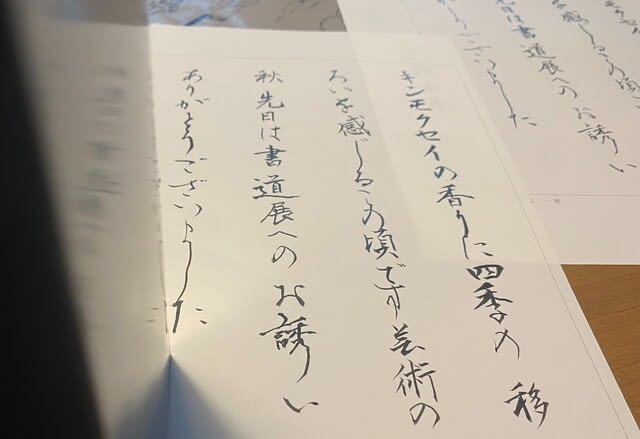 キンモクセイの香りに四季の移
ろいを感じるこの頃です芸術の
秋先日は書道展へのお誘い
ありがとうございました
を感じるこの頃
は書道展へのお誘い
ございました